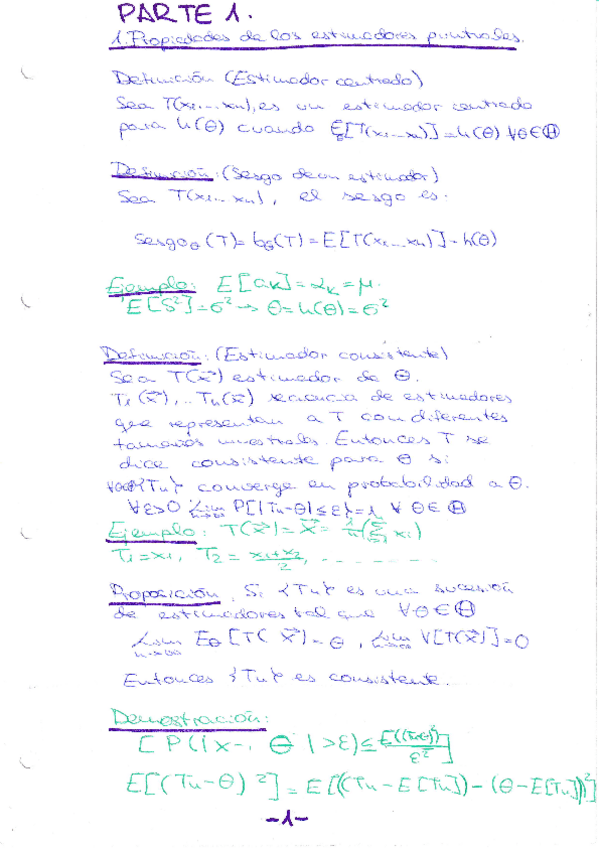 PARTE 1.
1. Propiedades de los estimadores puntuales.
Definición (Estimador centrado)
Sea T(x₁...xₙ), es un estimador centrado
para h(θ) cuando E_θ[T(x₁...xₙ)] = h(θ) ∀θ∈Θ
Definición: (Sesgo de un estimador)
Sea T(x₁...xₙ), el sesgo es:
Sesgo_θ(T) = b_θ(T) = E[T(x₁...xₙ)] - h(θ)
Ejemplo: E[aₖ] = αₖ = μ.
E[S²] = σ² → θ = h(θ) = σ²
Definición: (Estimador consistente)
Sea T(x⃗) estimador de θ.
T₁(x⃗), ... Tₙ(x⃗) secuencia de estimadores
que representan a T con diferentes
tamaños muestrales. Entonces T se
dice consistente para θ si
{Tₙ} converge en probabilidad a θ.
∀ε>0 lim n→∞ P{|Tₙ-θ| ≤ ε} = 1 ∀ θ∈Θ
Ejemplo: T(x⃗) = x̄ = 1/n (Σ xᵢ)
T₁ = x₁, T₂ = (x₁+x₂)/2, - - - - - - -
Proposición. Si {Tₙ} es una sucesión
de estimadores tal que ∀θ∈Θ
lim n→∞ E_θ[T(x⃗)] = θ, lim n→∞ V[T(x⃗)] = 0
Entonces {Tₙ} es consistente.
Demostración:
[P(|x-. θ|>ε) ≤ /ε²]
E[(Tₙ-θ)²] = E[((Tₙ-E[Tₙ])-(θ-E[Tₙ]))²]
-1-